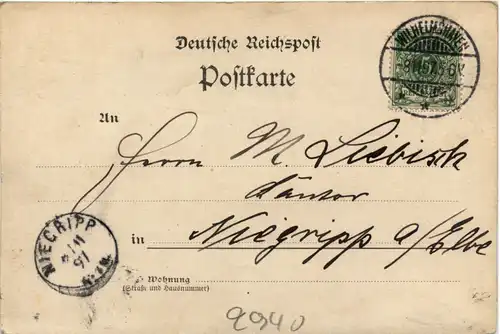 Deutsche Reichspost
Postkarte
WILHELMSHAVEN
An
Herrn M. Liebisch
Kantor
in Niegripp a/Elbe
NIEGRIPP
Wohnung
(Straße und Hausnummer)
2940